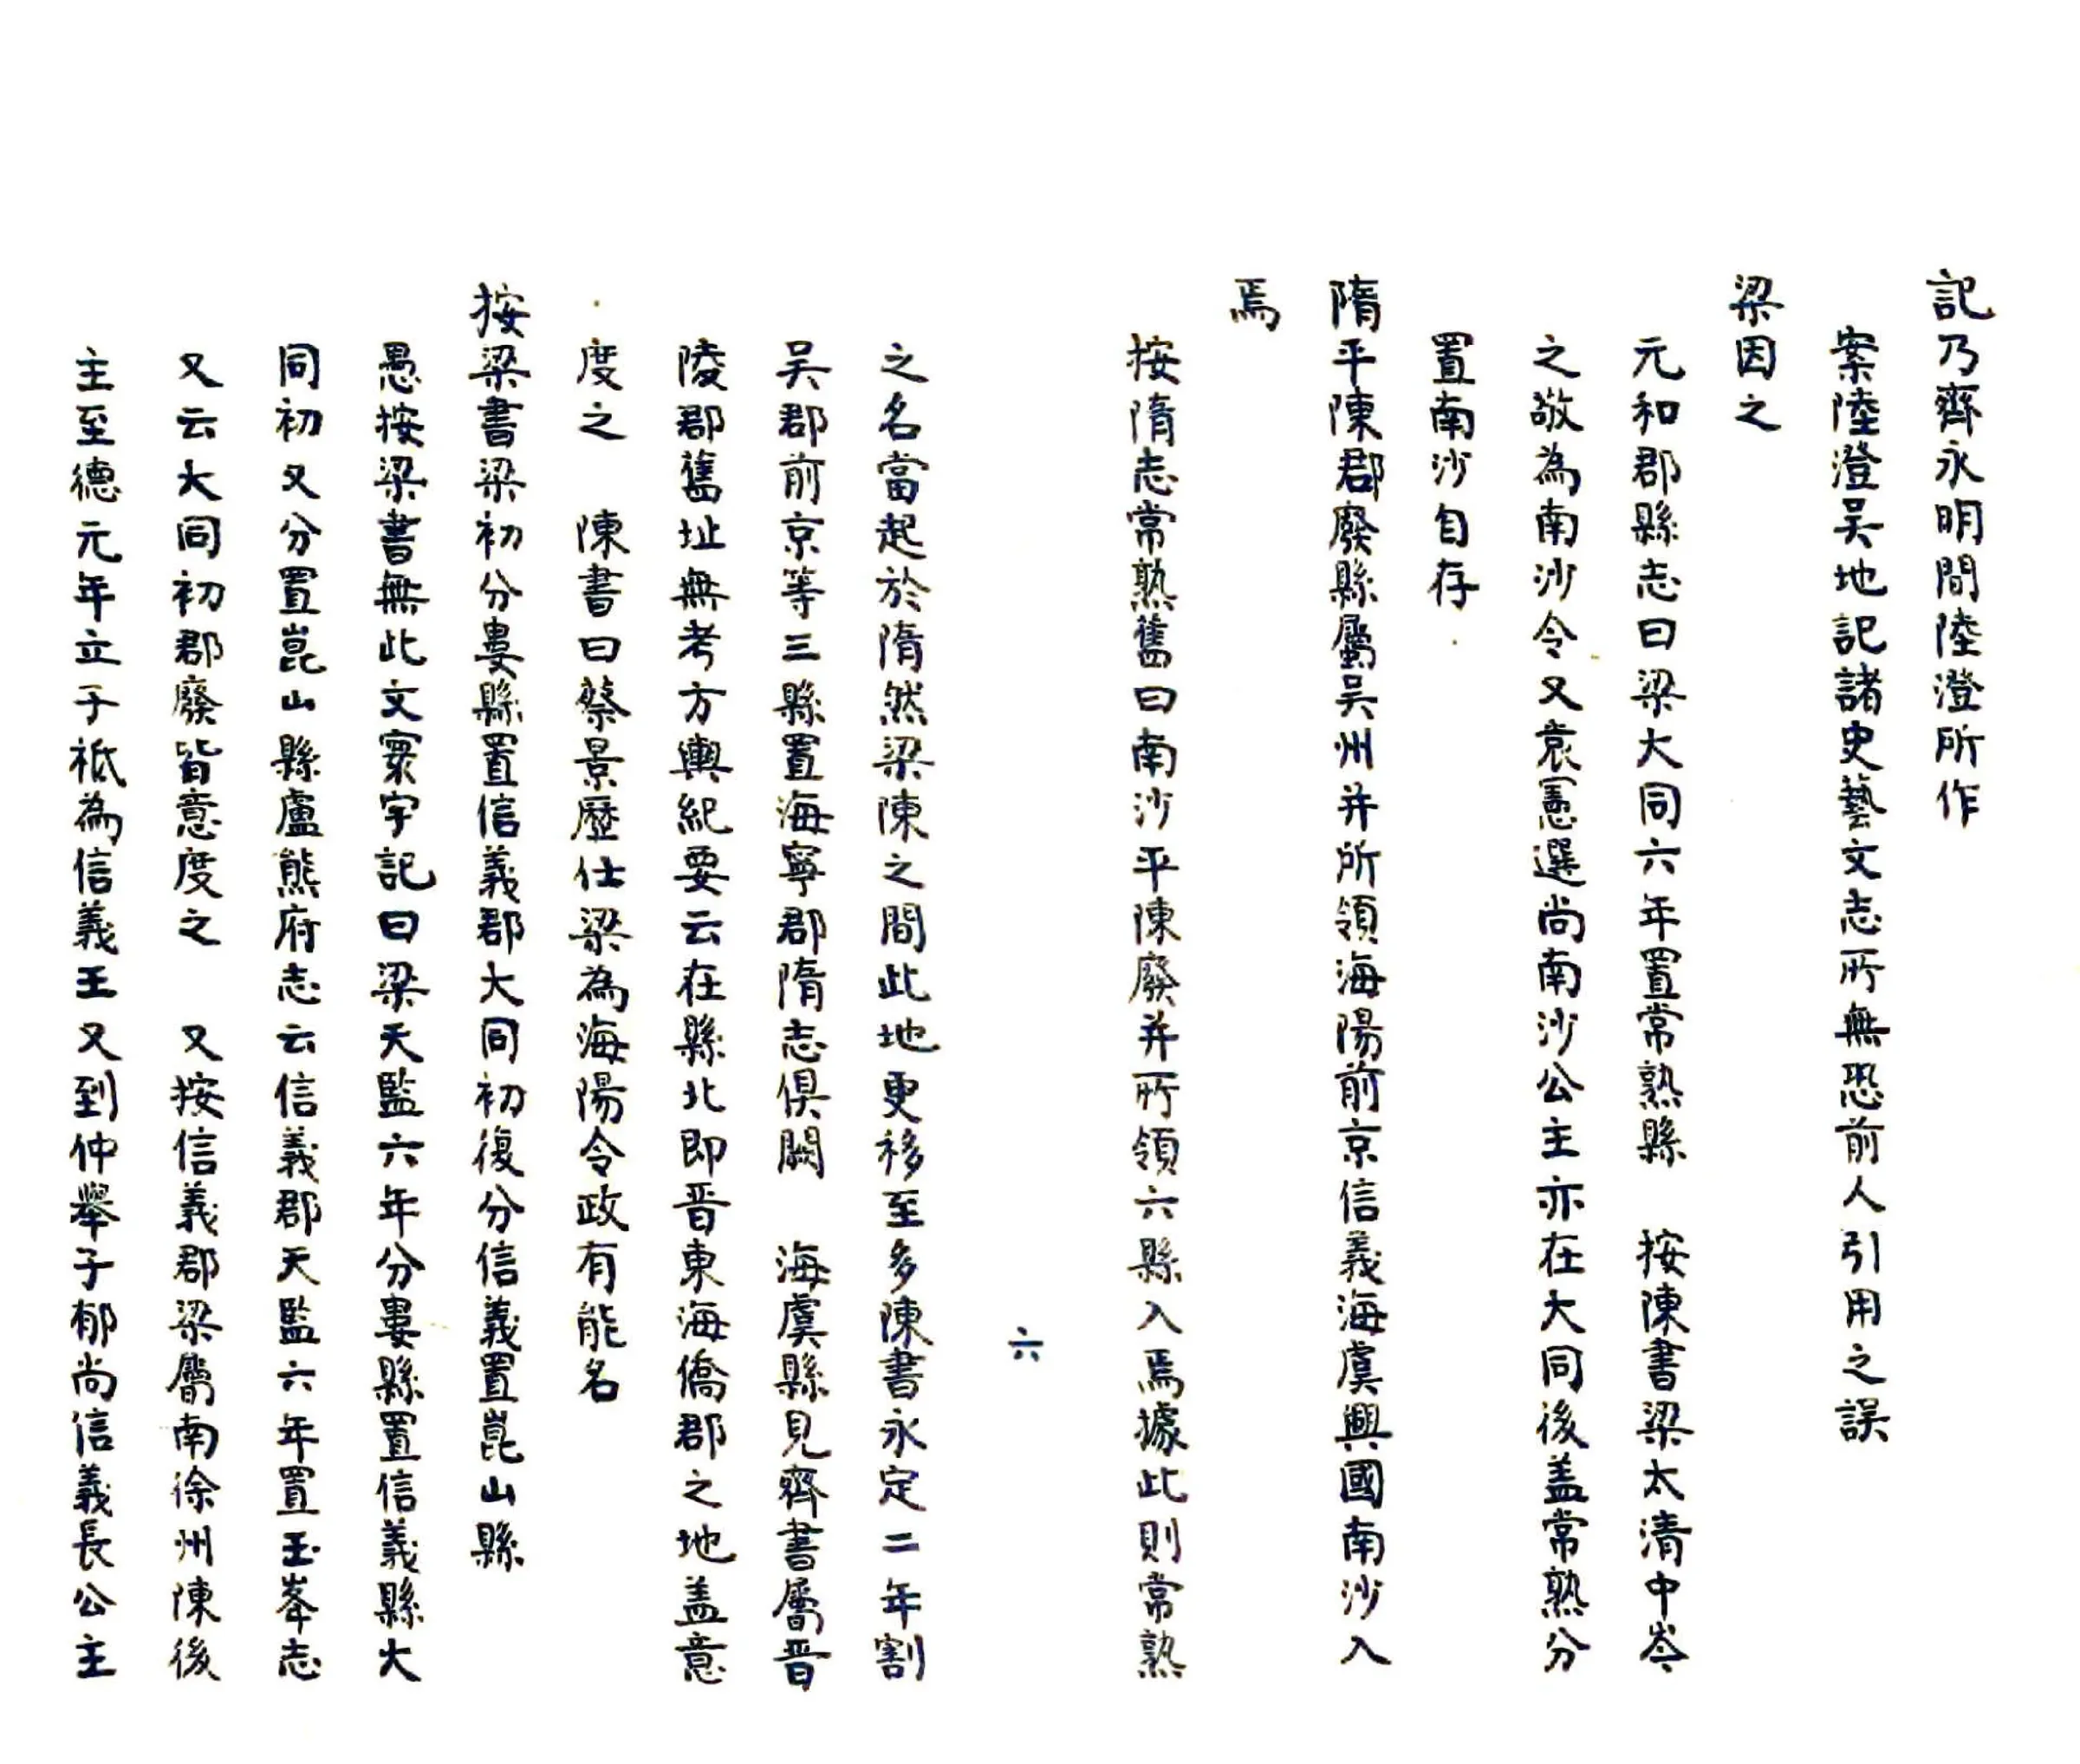 記乃齊永明間陸澄所作
案陸澄吴地記諸史藝文志所無恐前人引用之誤
梁因之
元和郡縣志曰梁大同六年置常熟縣　按陳書梁太清中岑
之敬為南沙令又袁憲選尚南沙公主亦在大同後盖常熟分
置南沙自存
隋平陳郡廢縣屬吴州并所領海陽前京信義海虞興國南沙入
焉
按隋志常熟舊曰南沙平陳廢并所領六縣入焉據此則常熟
六
之名當起於隋然梁陳之間此地更移至多陳書永定二年割
吴郡前京等三縣置海寧郡隋志俱闕　海虞縣見齊書屬晋
陵郡舊址無考方輿紀要云在縣北即晋東海僑郡之地盖意
度之　陳書曰蔡景歷仕梁為海陽令政有能名
按梁書梁初分婁縣置信義郡大同初復分信義置崑山縣
愚按梁書無此文寰宇記曰梁天監六年分婁縣置信義縣大
同初又分置崑山縣盧熊府志云信義郡天監六年置玉峯志
又云大同初郡廢皆意度之　又按信義郡梁屬南徐州陳後
主至德元年立子祗為信義王又到仲舉子郁尚信義長公主